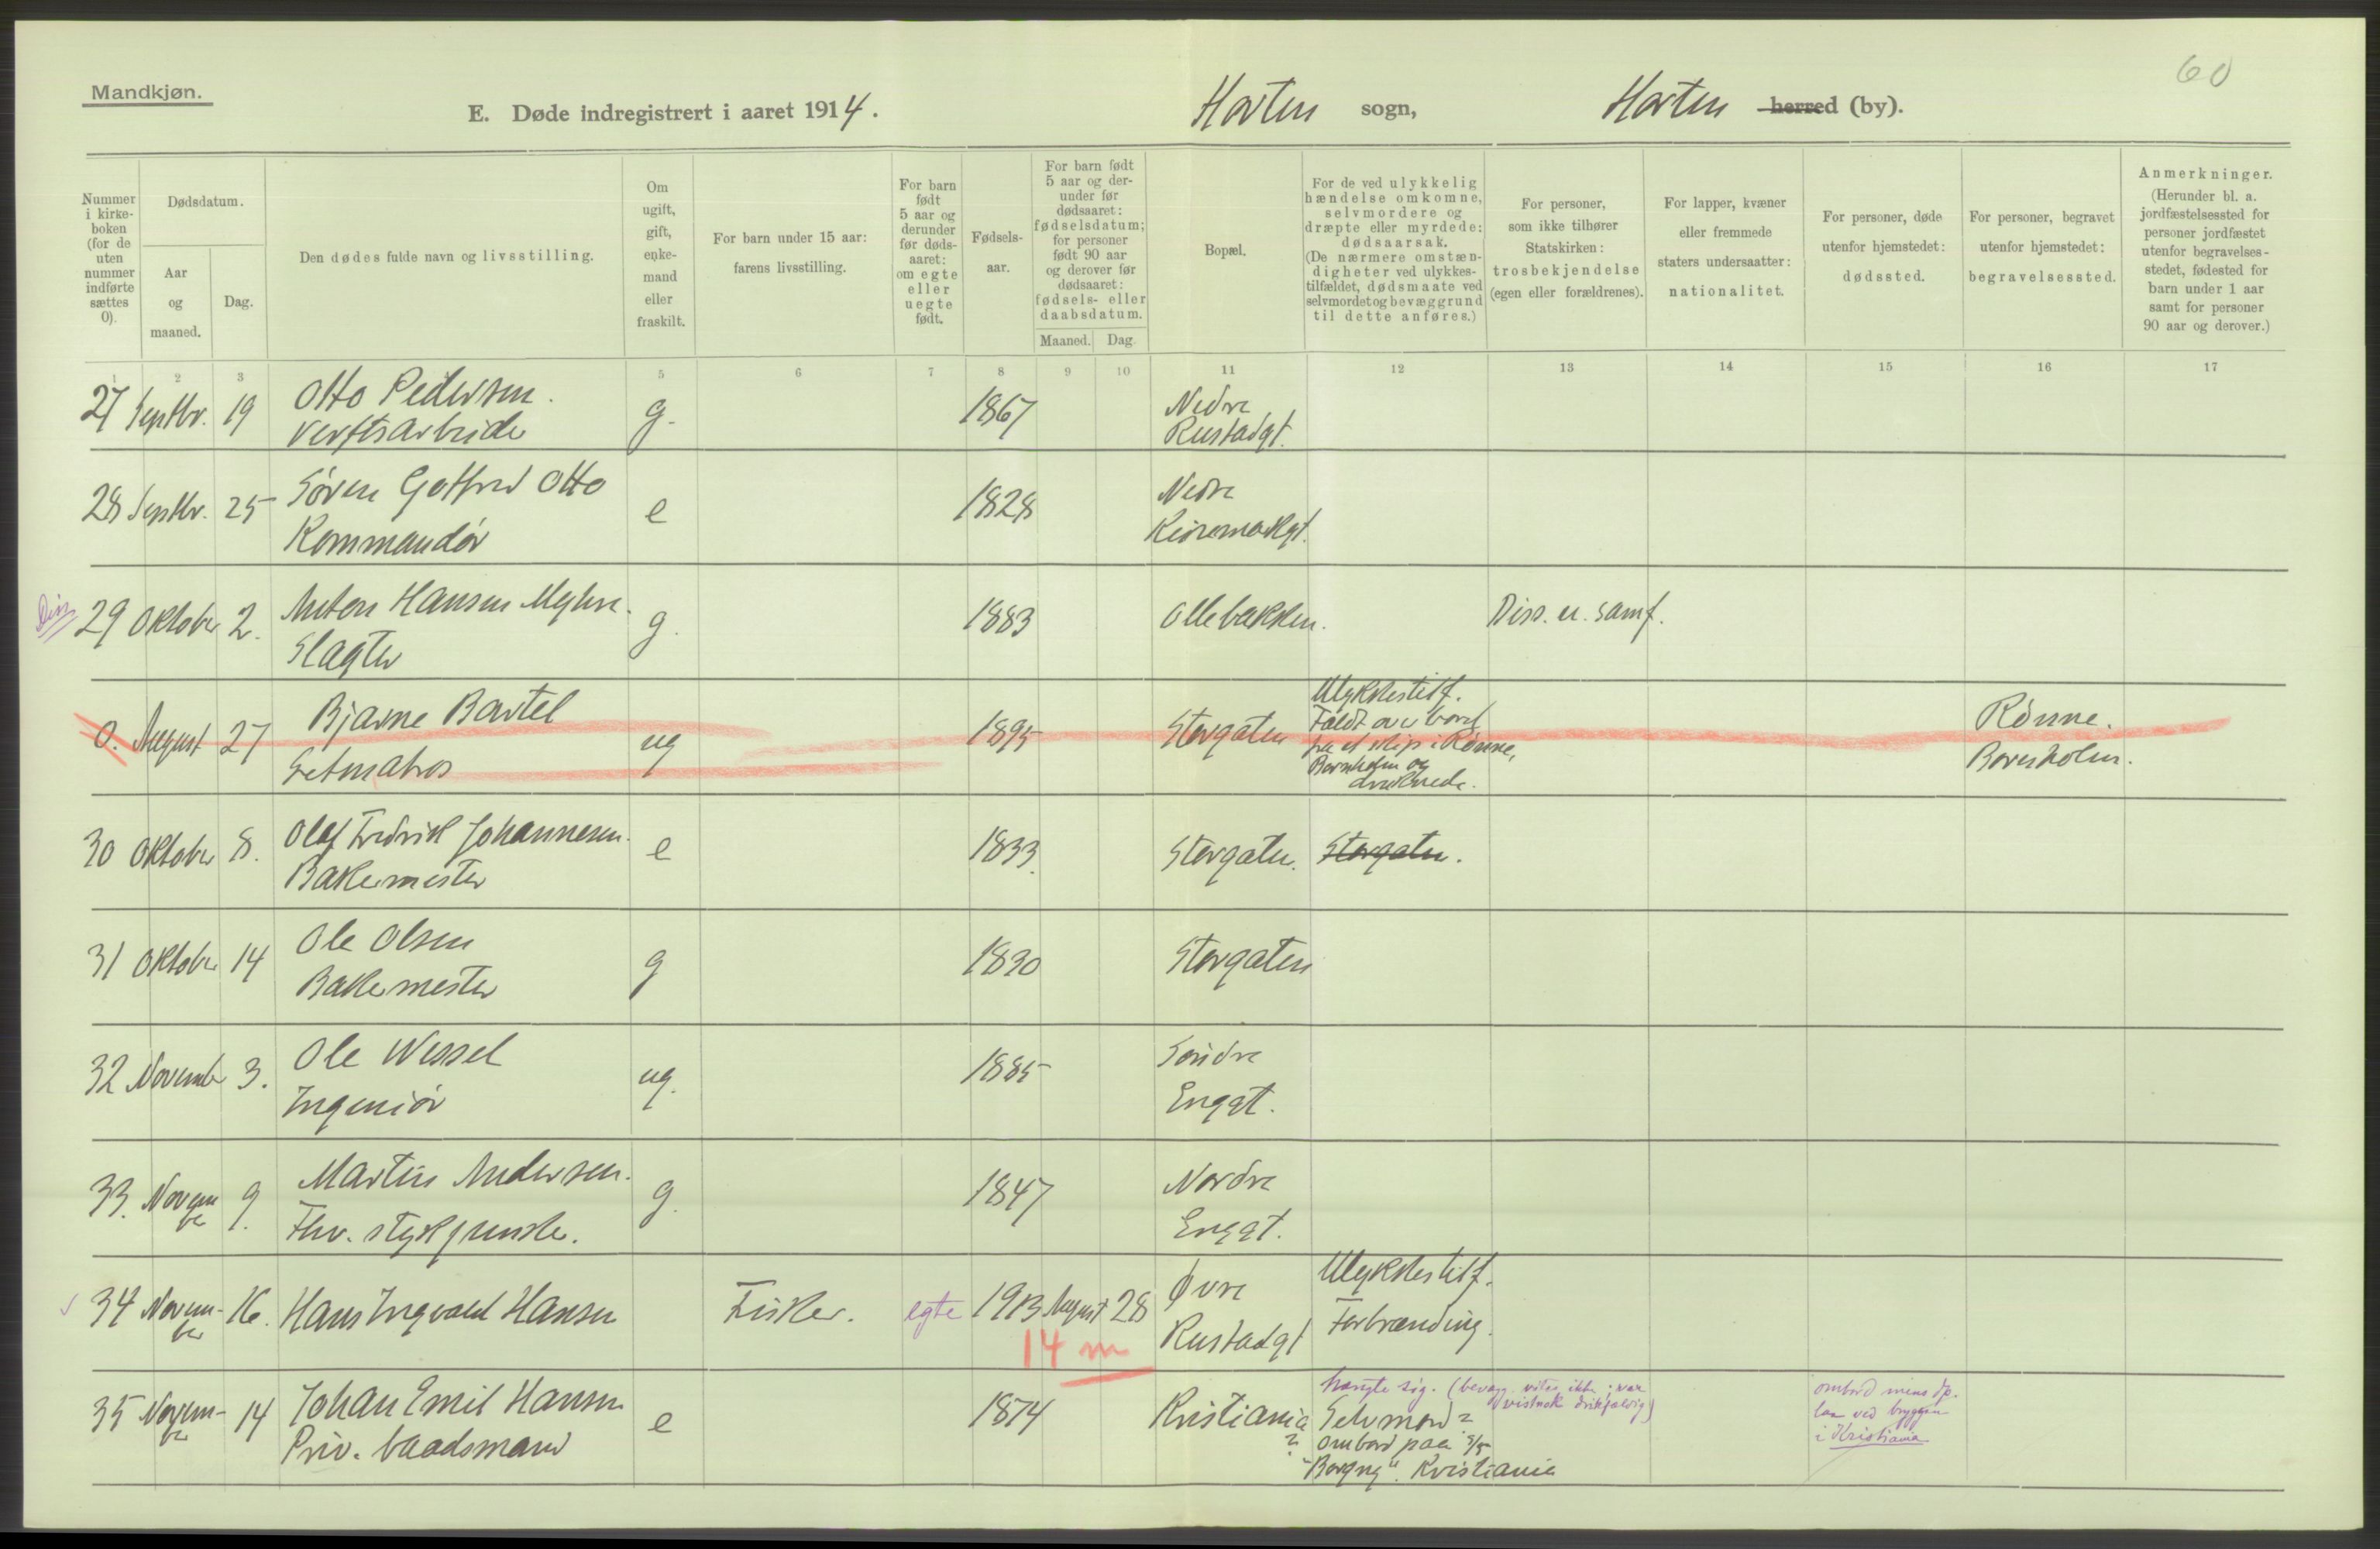 60
Mandkjøn.
E. Døde indregistrert i aaret 1914.
Horten sogn,
Horten herred (by).
Nummer i kirke-boken (for de uten nummer indførte sættes 0).
Dødsdatum.
Aar og maaned.
Dag.
Den dødes fulde navn og livsstilling.
Om ugift, gift, enke-mand eller fraskilt.
For barn under 15 aar: farens livsstilling.
For barn født 5 aar og derunder før døds-aaret: om egte eller uegte født.
Fødsels-aar.
For barn født 5 aar og der-under før dødsaaret: fødselsdatum; for personer født 90 aar og derover før dødsaaret: fødsels- eller daabsdatum.
Maaned.
Dag.
Bopæl.
For de ved ulykkelig hændelse omkomne, selvmordere og dræpte eller myrdede: dødsaarsak. (De nærmere omstæn-digheter ved ulykkes-tilfældet, dødsmaate ved selvmordet og bevæggrund til dette anføres.)
For personer, som ikke tilhører Statskirken: trosbekjendelse (egen eller forældrenes).
For lapper, kvæner eller fremmede staters undersaatter: nationalitet.
For personer, døde utenfor hjemstedet: dødssted.
For personer, begravet utenfor hjemstedet: begravelsessted.
Anmerkninger. (Herunder bl. a. jordfæstelsessted for personer jordfæstet utenfor begravelses-stedet, fødested for barn under 1 aar samt for personer 90 aar og derover.)
1 2 3 5 6 7 8 9 10 11 12 13 14 15 16 17
27 Septbr. 19 Otto Pedersen. g. 1867 Nedre
Verftsarbeider Rustadgt.
28 Septbr. 25 Søren Gotfred Otto e 1828 Nedre
Kommandør Keisemarkgt.
Diss
29 Oktober 2. Anton Hansen Myhre. g. 1883 Ollebakken. Diss. u. samf.
Slagter
0. August 27 Bjarne Bartel ug 1895 Storgaten Ulykkestilf.
Letmatros Faldt over bord
fra et skip i Rønne,
Bornholm og
druknede.
Rønne.
Bornholm.
30 Oktober 8. Olaf Fredrik Johannesen. e 1833. Storgaten. Storgaten.
Bakermester
31 Oktober 14 Ole Olsen g 1830 Storgaten
Bakermester
32 November 3. Ole Wessel ug. 1885 Søndre
Ingeniør Enggt.
33. November 9. Martin Andersen. g. 1847 Nordre
Fhv. stykjunker. Enggt.
34 November 16. Hans Ingvald Hansen Fisker. egte 1913 August 28 Øvre Ulykkestilf.
14 m Rustadgt Forbrænding.
35 November 14 Johan Emil Hansen e 1874 Kristiania ?
Priv. baadsmand
hængte sig. (bevægg. vites ikke; var
vistnok drikfældig)
Selvmord
ombord paa S/S
"Borgny". Kristiania
ombord mens sp.
laa ved bryggen
i Kristiania